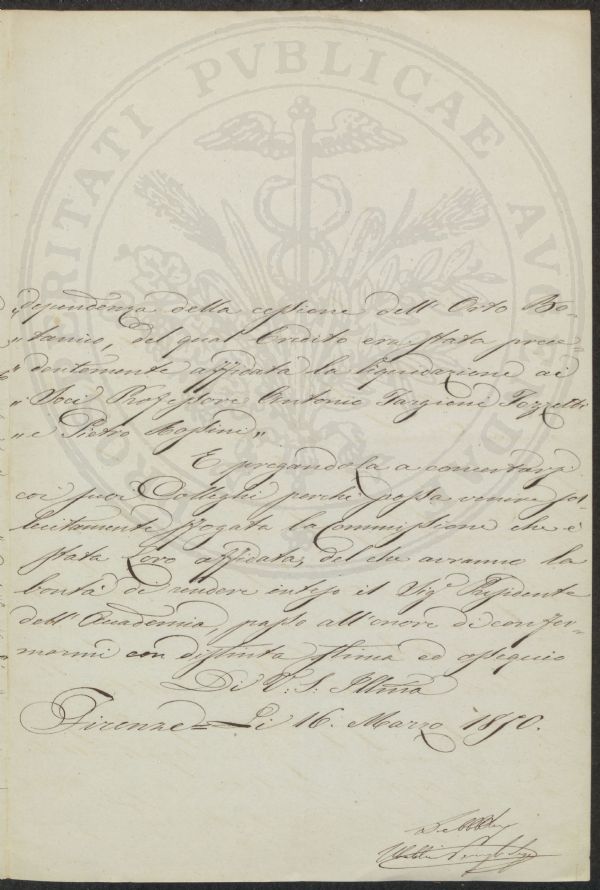 PROSPERITATI PVBLICAE AVGENDAE
„ dependenza della cessione dell' Orto Bo-
„ tanico, del qual Credito era stata prece-
„ dentemente affidata la liquidazione ai
„ Soci Professore Antonio Targioni Tozzetti
„ e Pietro Masini „
E pregandola a concertarsi
coi suoi Colleghi perché possa venire sol-
lecitamente sfogata la Commissione che è
stata Loro affidata, del che avranno la
bontà di rendere inteso il Sig.e Presidente
dell' Accademia, passo all' onore di confer-
marmi con distinta stima ed ossequio
Di V: S: Illma
Firenze = Li 16. Marzo 1850.